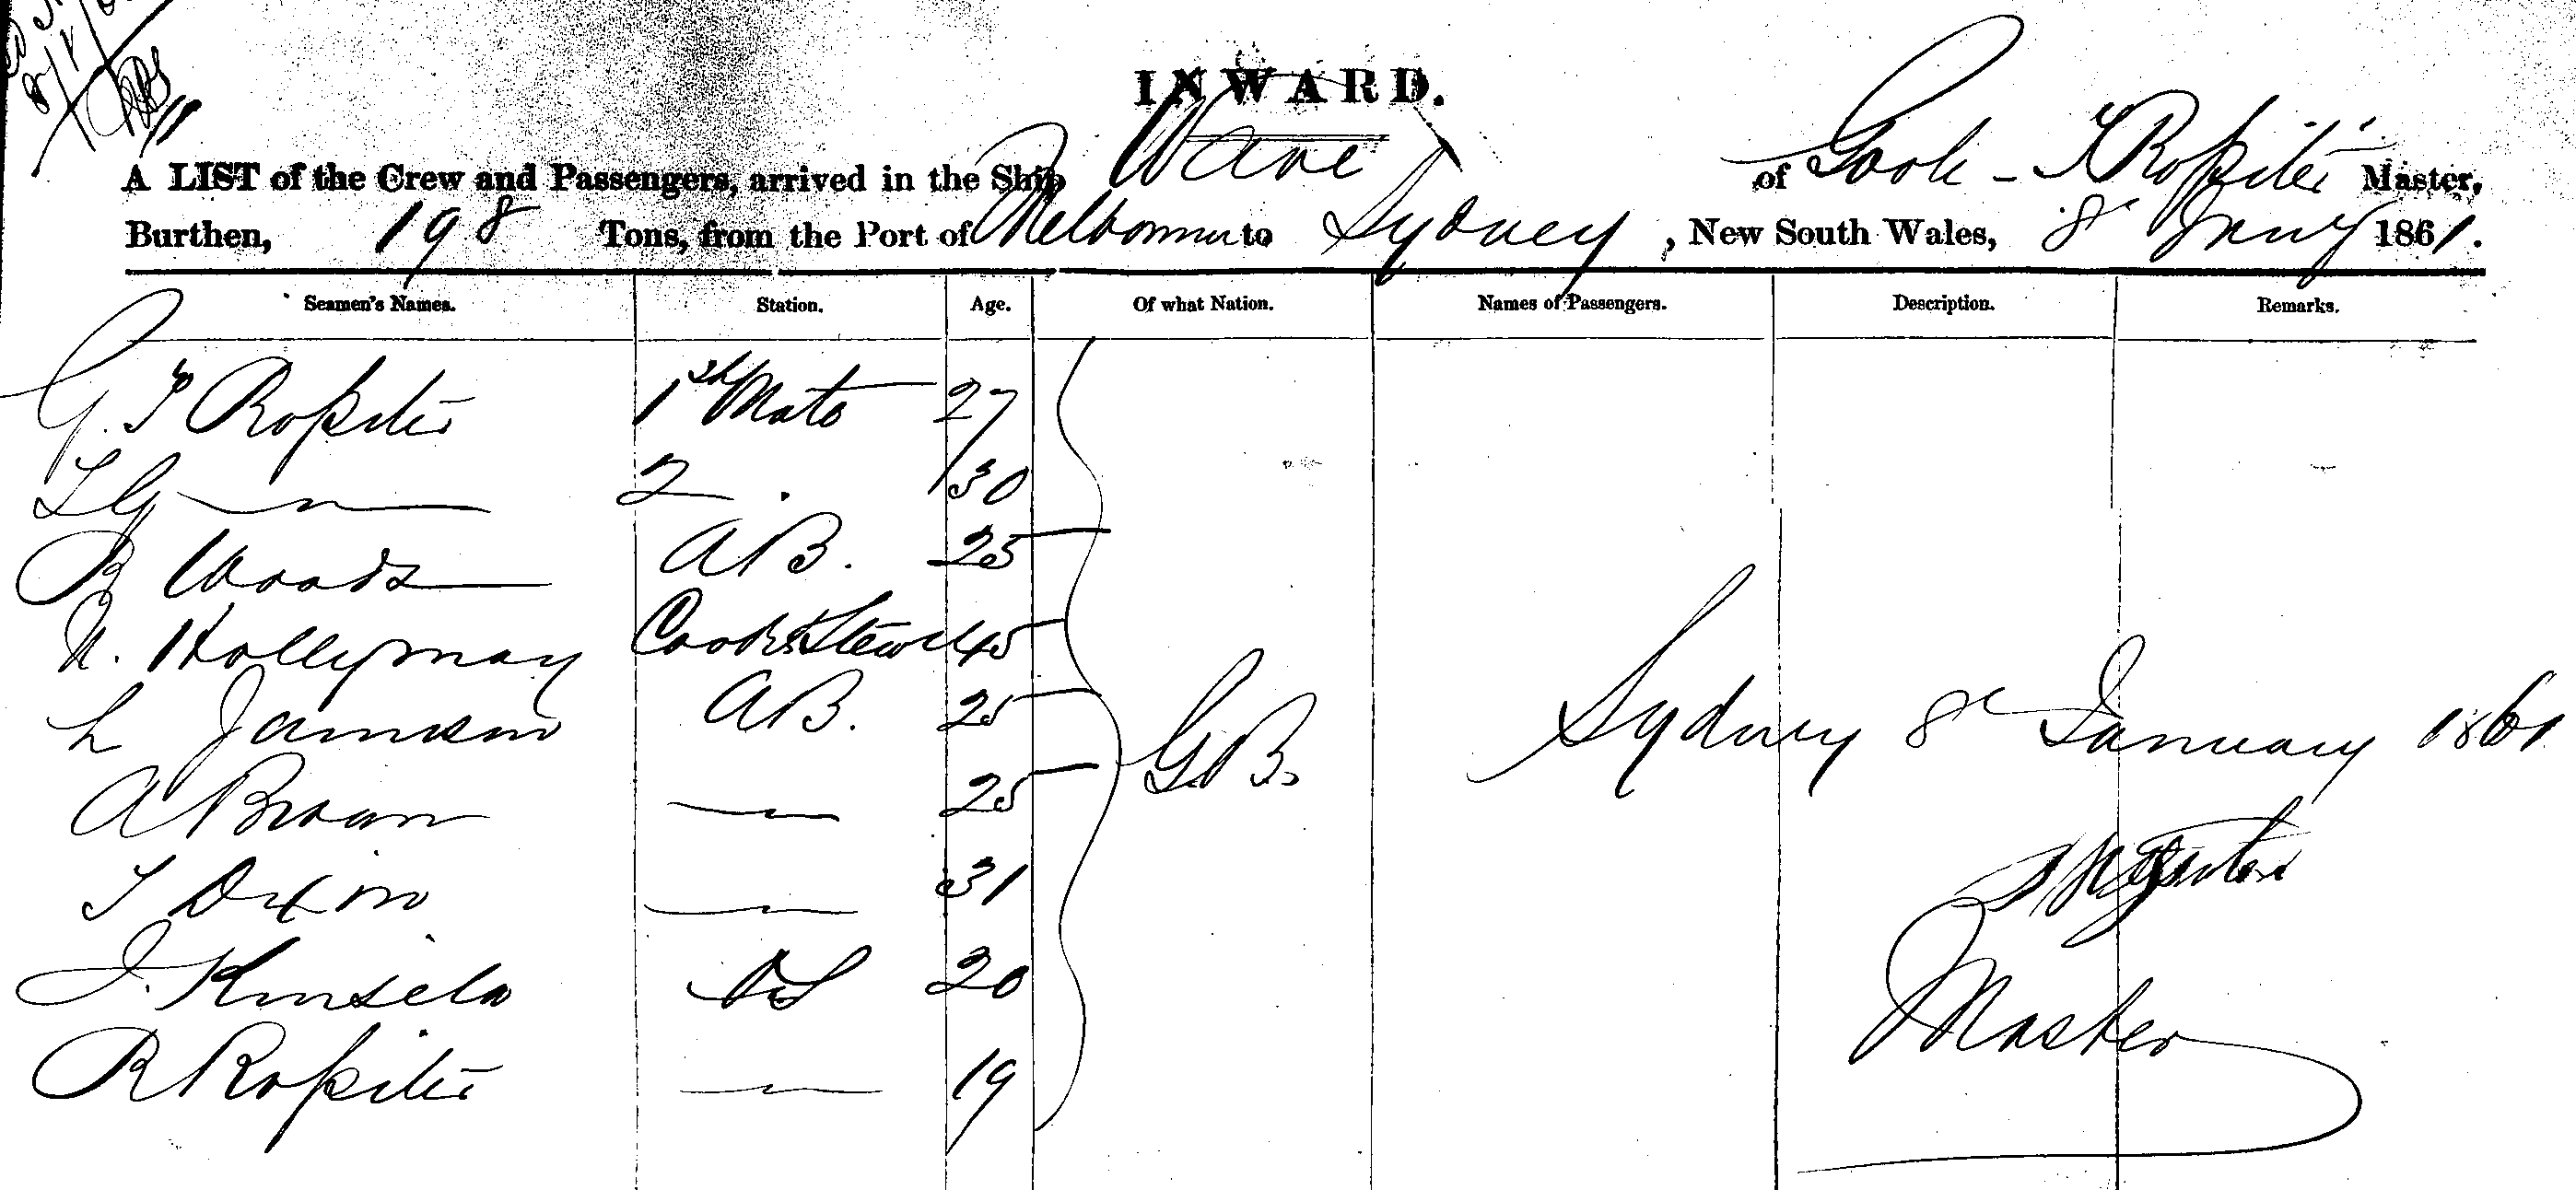 INWARD.
A LIST of the Crew and Passengers, arrived in the Ship Wave of Goole - T Roſsiter Master,
Burthen, 198 Tons, from the Port of Melbourne to Sydney, New South Wales, 8 Jany 1861.
Seamen's Names. Station. Age. Of what Nation. Names of Passengers. Description. Remarks.
G. T Roſsiter 1st Mate 27
2 30
R Woods AB. 25
N. Hollyman Cook & Stewd 45
L Jamieson AB. 25
A Brown 25
G.B. Sydney 8 January 1861
T Dixon 31
J. Kinsela OS 20
Master
R Roſsiter 19